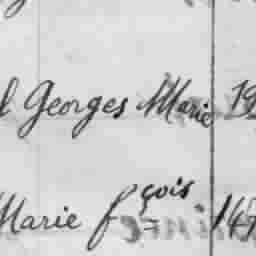 Georges Marie 19
Marie fçois 14